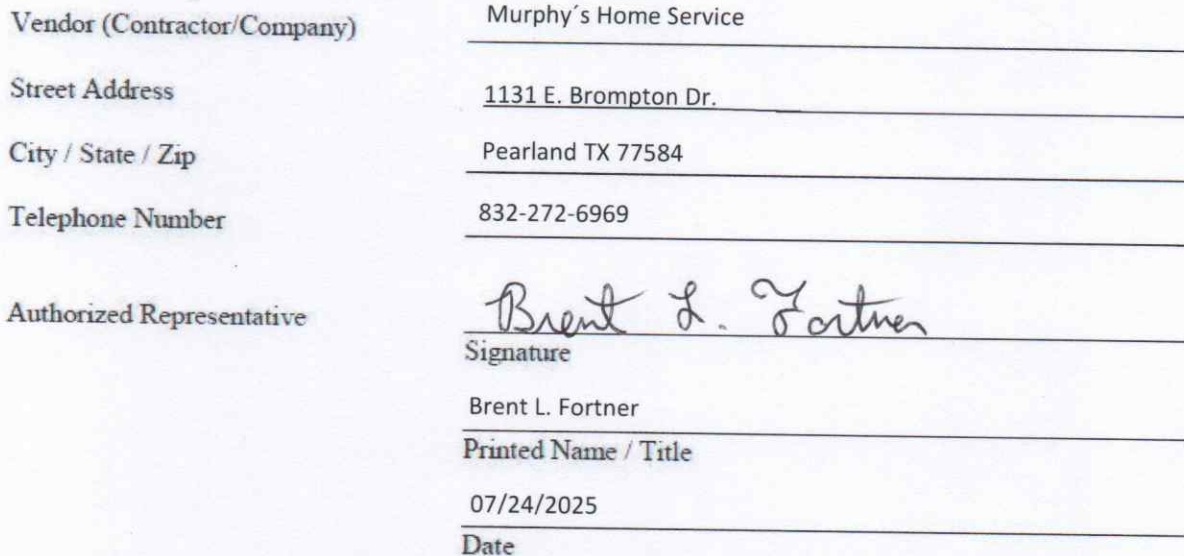 Vendor (Contractor/Company) Murphy´s Home Service
Street Address 1131 E. Brompton Dr.
City / State / Zip Pearland TX 77584
Telephone Number 832-272-6969
Authorized Representative Brent L. Fortner
Signature
Brent L. Fortner
Printed Name / Title
07/24/2025
Date